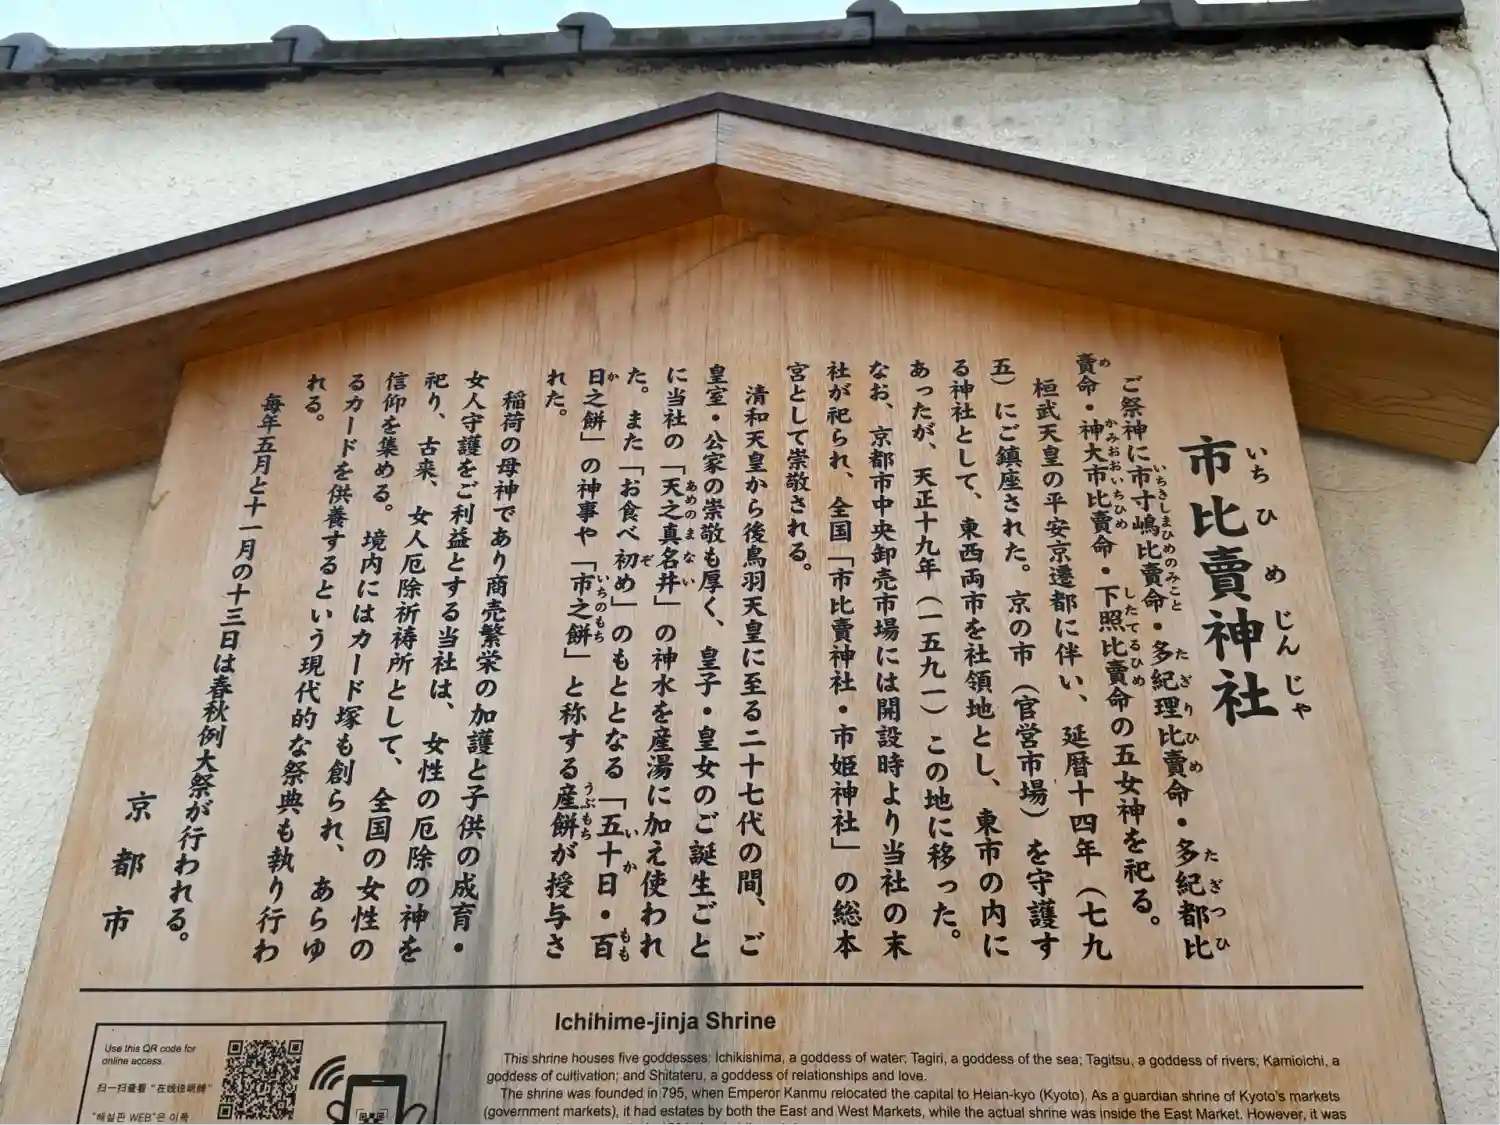 市比賣神社
いちひめじんじゃ
ご祭神に市寸嶋比賣命・多紀理比賣命・多紀都比
賣命・神大市比賣命・下照比賣命の五女神を祀る。
桓武天皇の平安京遷都に伴い、延暦十四年（七九
五）にご鎮座された。京の市（官営市場）を守護す
る神社として、東西両市を社領地とし、東市の内に
あったが、天正十九年（一五九一）この地に移った。
なお、京都市中央卸売市場には開設時より当社の末
社が祀られ、全国「市比賣神社・市姫神社」の総本
宮として崇敬される。
清和天皇から後鳥羽天皇に至る二十七代の間、ご
皇室・公家の崇敬も厚く、皇子・皇女のご誕生ごと
に当社の「天之真名井」の神水を産湯に加え使われ
た。また「お食べ初め」のもととなる「五十日・百
日之餅」の神事や「市之餅」と称する産餅が授与さ
れた。
稲荷の母神であり商売繁栄の加護と子供の成育・
女人守護をご利益とする当社は、女性の厄除の神を
祀り、古来、女人厄除祈祷所として、全国の女性の
信仰を集める。境内にはカード塚も創られ、あらゆ
るカードを供養するという現代的な祭典も執り行わ
れる。
毎年五月と十一月の十三日は春秋例大祭が行われる。
京都市
Ichihime-jinja Shrine
This shrine houses five goddesses: Ichikishima, a goddess of water; Tagiri, a goddess of the sea; Tagitsu, a goddess of rivers; Kamioichi, a
goddess of cultivation; and Shitateru, a goddess of relationships and love.
The shrine was founded in 795, when Emperor Kanmu relocated the capital to Heian-kyo (Kyoto). As a guardian shrine of Kyoto's markets
(government markets), it had estates by both the East and West Markets, while the actual shrine was inside the East Market. However, it was
Use this QR code for
online access.
扫一扫查看“在线说明牌”
"해설판 WEB"은 이쪽